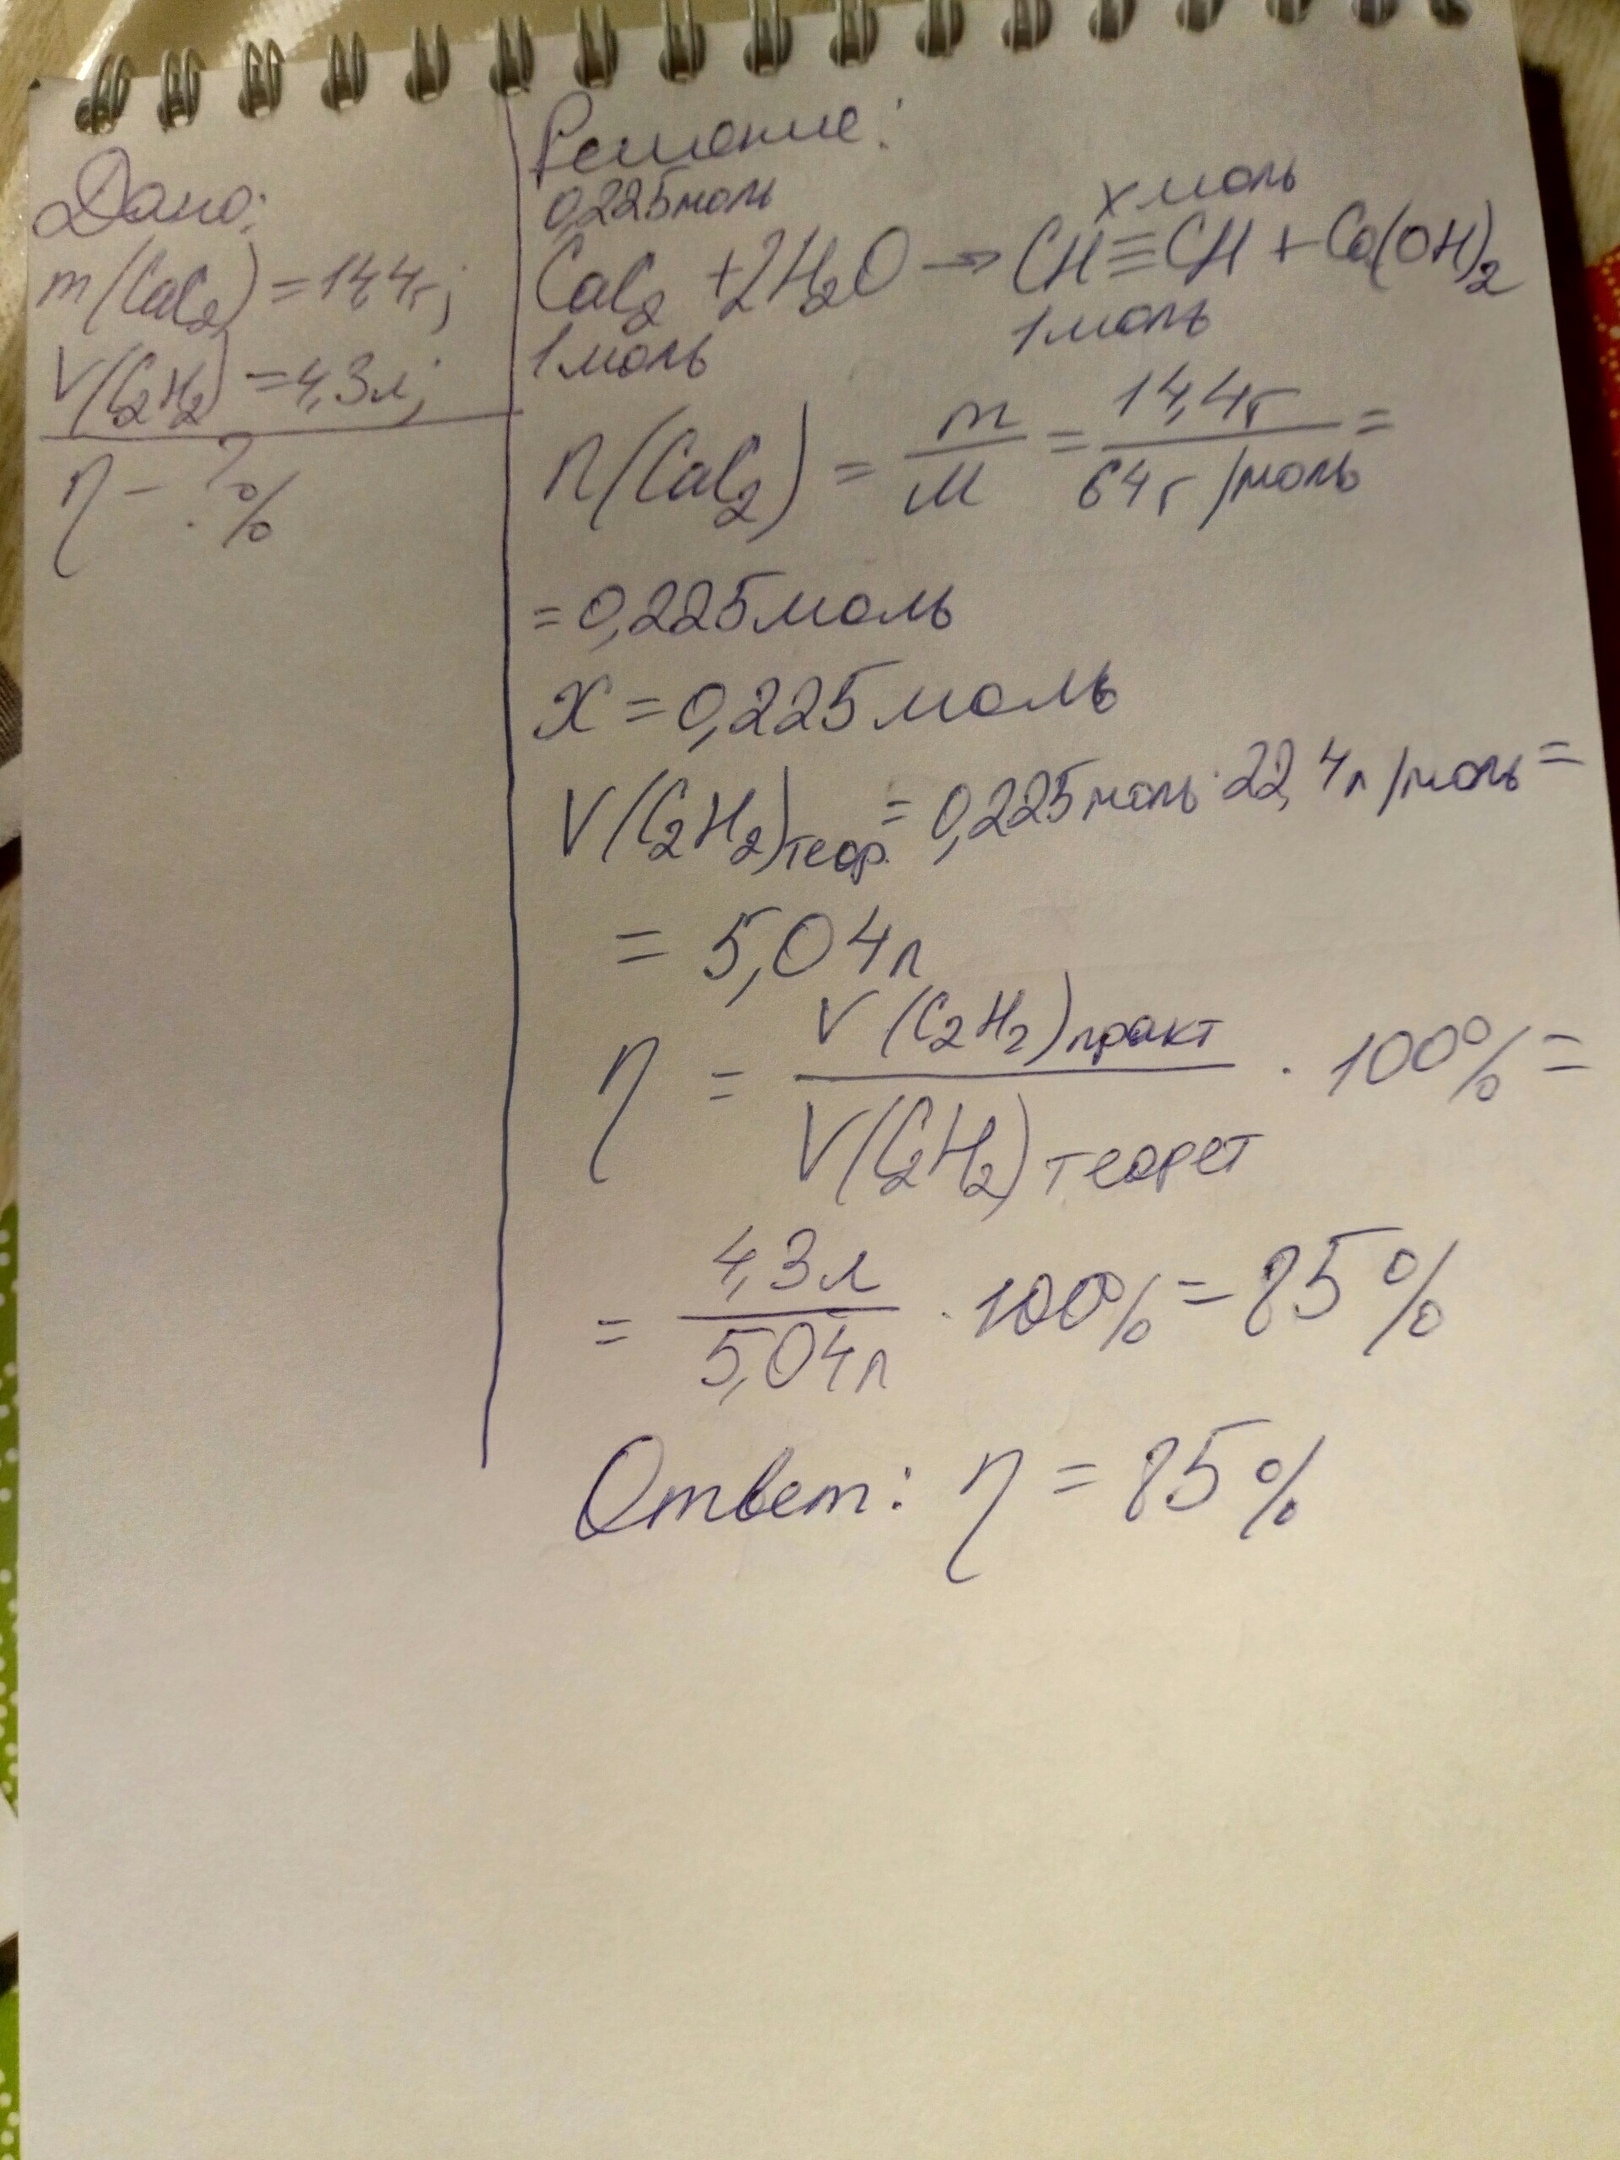 Дано:
m(CaC₂) = 14,4г;
V(C₂H₂) = 4,3л;
η - ? %
Решение:
0,225моль x моль
CaC₂ + 2H₂O → CH≡CH + Ca(OH)₂
1моль 1моль
n(CaC₂) = m/M = 14,4г/64г/моль =
= 0,225моль
x = 0,225моль
V(C₂H₂)теор. = 0,225моль · 22,4л/моль =
= 5,04л
η = V(C₂H₂)практ / V(C₂H₂)теорет · 100% =
= 4,3л / 5,04л · 100% = 85%
Ответ: η = 85%